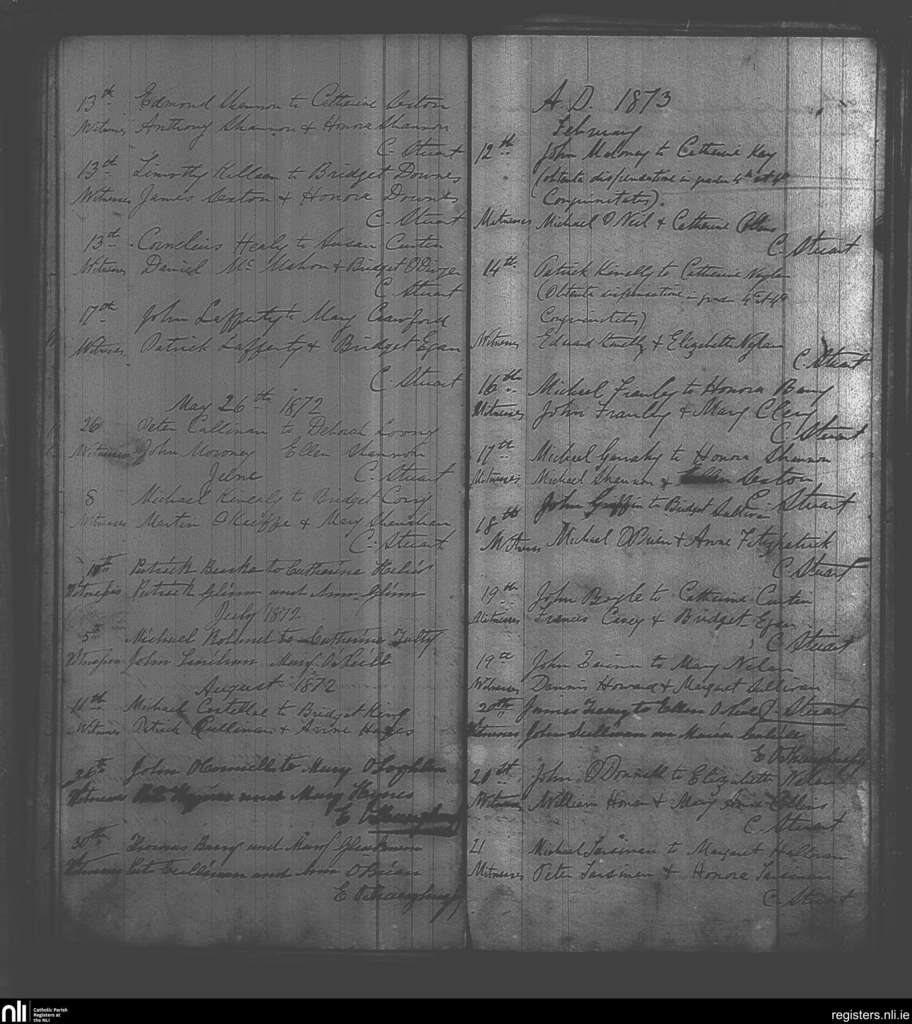 13th Edmond Shannon to Catherine Sexton
Witnesses Anthony Shannon & Honora Shannon
C. Stuart
13th Timothy Killeen to Bridget Downes
Witnesses James Sexton & Honora Downes
C. Stuart
13th Cornelius Healy to Susan Curtin
Witnesses Daniel Mc Mahon & Bridget O'Dwyer
C. Stuart
17th John Lafferty to Mary Crawford
Witnesses Patrick Lafferty & Bridget Egan
C. Stuart
May 26th 1872
26 Peter Cullinan to Deborah
Witnesses John Moroney Ellen Shannon
June C. Stuart
8 Michael to Bridget Corry
Witnesses Martin O'Keeffe & Mary Shanahan
C. Stuart
Patrick Burke to Catharine
Witnesses Patrick Glinn and Ann Glinn
July 1872
5th Michael to Catherine
Witnesses John Mary O'Neill
August 1872
11th Michael Costelloe to Bridget King
Witness Patrick Cullinan & Anne Hayes
John O'Connell to Mary O'Loghlen
Witnesses and Mary Hynes
E O'Shaughnessy
30th Thomas Barry and Mary
Witnesses Pat Cullinan and Ann O'Brien
E O'Shaughnessy
A. D. 1873
February
12th John Moloney to Catherine Kay
(obtenta dispensatione in gradu 4th et 4th
Consanguinitatis).
Witnesses Michael O'Neil & Catherine Collins
C. Stuart
14th Patrick Kinelly to Catherine Naylan
(Obtenta dispensatione in gradu 4th et 4th
Consanguinitatis)
Witnesses Edward Kinelly & Elizabeth Naylan
C. Stuart
16th Michael Franly to Honora Barry
Witnesses John Franly & Mary Clery
C. Stuart
17th Michael to Honora Shannon
Witnesses Michael Shannon & Ellen Sexton
C. Stuart
18th John Griffin to Bridget Sullivan
Witness Michael O'Brien & Anne Fitzpatrick
C. Stuart
19th John Boyle to Catherine Curtin
Witnesses Francis Casey & Bridget Egan
C. Stuart
19th John Quinn to Mary Nolan
Witnesses Dennis Howard & Margaret Sullivan
C. Stuart
20th James to Ellen
Witnesses John Sullivan
E O'Shaughnessy
20th John O'Donnell to Elizabeth
Witness William Honan & Mary Anne Collins
C. Stuart
21 Michael to Margaret
Witnesses Peter & Honora
C. Stuart
nli
Catholic Parish
Registers at
the NLI
registers.nli.ie